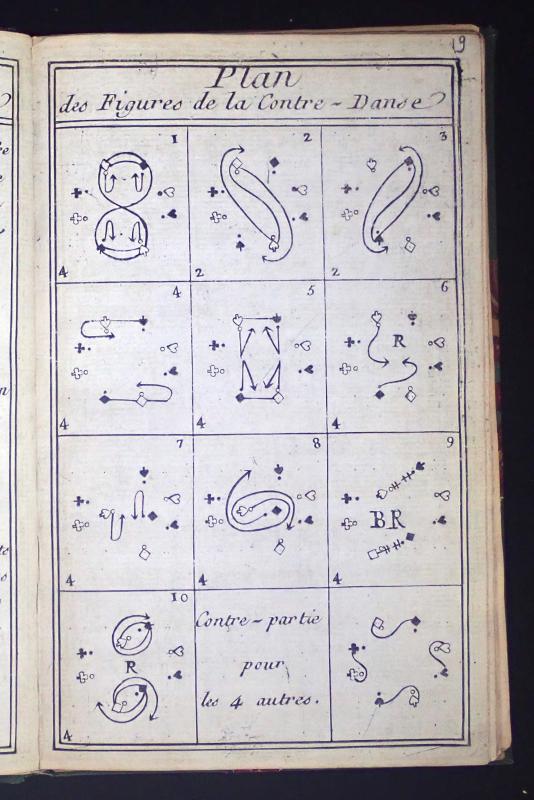 19
Plan
des Figures de la Contre-Danse
1
2
3
4
2
2
4
5
6
4
4
4
R
7
8
9
4
4
4
BR
10
R
4
Contre-partie
pour
les 4 autres.